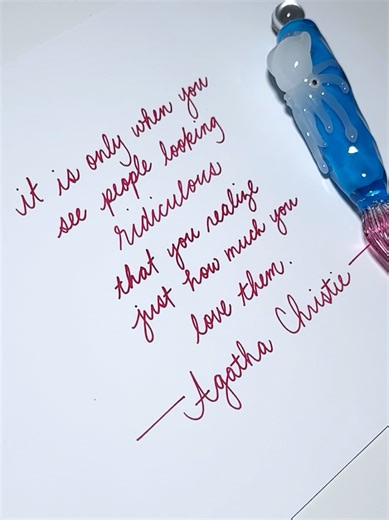 it is only when you
see people looking
ridiculous
that you realize
just how much you
love them.
— Agatha Christie —